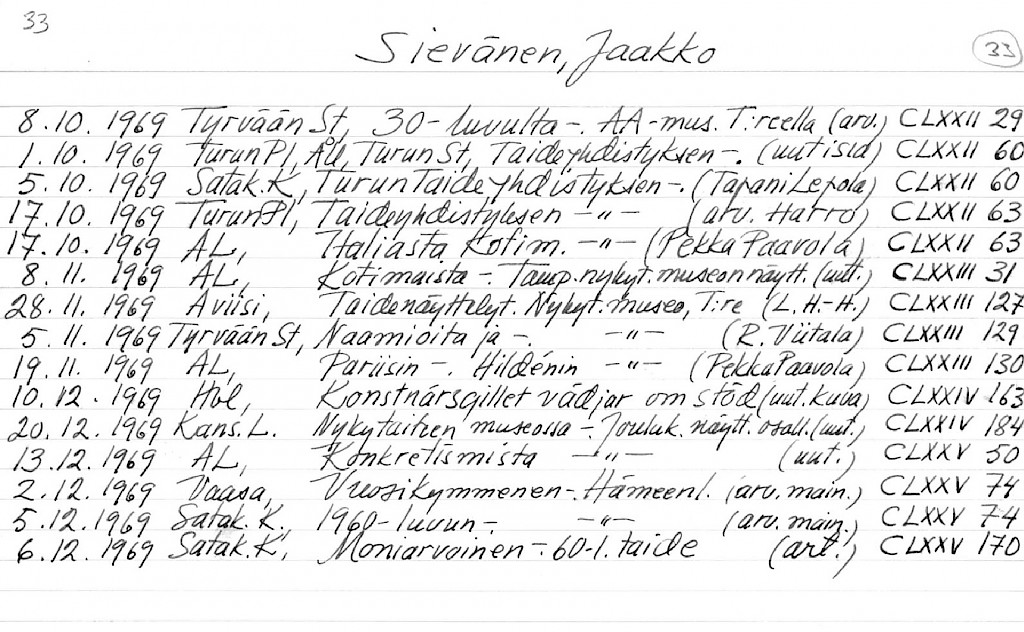 33
Sievänen, Jaakko
33
8.10. 1969 Tyrvään St, 30-luvulta -. AA-mus. T:reella (arv.) CLXXII 29
1.10. 1969 Turun Pl, ÅU, Turun St, Taideyhdistyksen -. (uutisia) CLXXII 60
5.10. 1969 Satak.K, Turun Taideyhdistyksen -. (Tapani Lepola) CLXXII 60
17.10. 1969 Turun Pl, Taideyhdistyksen -"- (arv. Harro) CLXXII 63
17.10. 1969 AL, Italiasta Kotim. -"- (Pekka Paavola) CLXXII 63
8.11. 1969 AL, Kotimaista -. Tamp. nykyt. museon näytt. (uut.) CLXXIII 31
28.11. 1969 Aviisi, Taidenäyttelyt. Nykyt. museo, T:re (L.H-H.) CLXXIII 127
5.11. 1969 Tyrvään St, Naamioita ja -. -"- (R. Viitala) CLXXIII 129
19.11. 1969 AL, Pariisin -. Hildénin -"- (Pekka Paavola) CLXXIII 130
10.12. 1969 Hbl, Konstnärsgillet vädjar om stöd (uut. kuva) CLXXIV 163
20.12. 1969 Kans.L. Nykytaiteen museossa -. Jouluk. näytt. osall. (uut.) CLXXIV 184
13.12. 1969 AL, Konkretismista -"- (uut.) CLXXV 50
2.12. 1969 Vaasa, Vuosikymmenen -. Hämeenl. (arv. main.) CLXXV 74
5.12. 1969 Satak.K., 1960-luvun -. -"- (arv. main.) CLXXV 74
6.12. 1969 Satak.K, Moniarvoinen -. 60-l. taide (art.) CLXXV 170